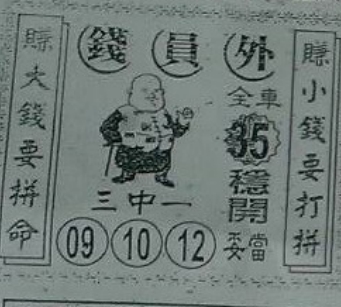 外員錢
賺小錢要打拼
全車
35
穩開
妥當
三中一
09 10 12
賺大錢要拼命